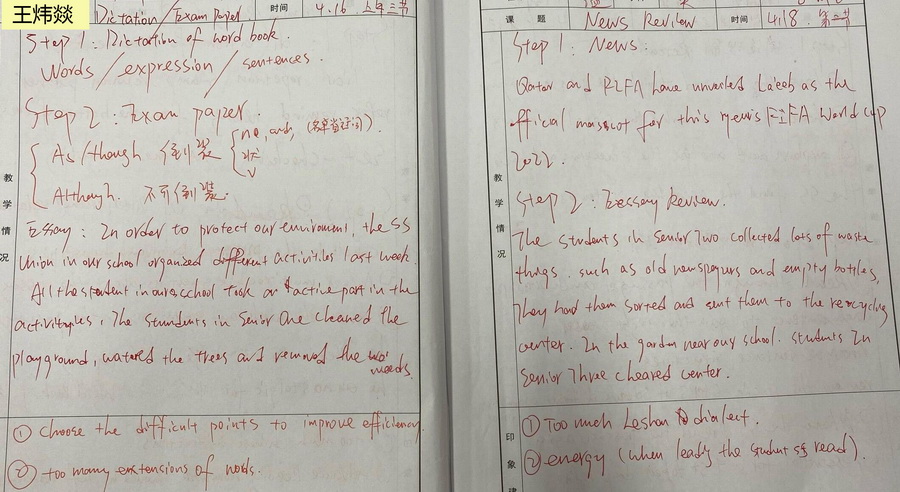 王炜燚
Dictation/Exam paper 时间 4.16 上午三节
Step 1: Dictartion of word book.
Words/expression/sentences.
Step 2: Exam paper.
As/though 倒装 { n a, adj, (名单首还词).
状
v
Although. 不可倒装.
Essay: In order to protect our enviroment, the SS
Union in our school organized different activitiles last week
All the student in our school took an active part in the
activities. The students in Senior One cleaned the
playground, watered the trees and removed the
weeds.
① Choose the difficult points to improve efficiency.
② too many extensions of words.
教学情况
课题 News Review 时间 4.18.
Step 1: News.
Qatar and FIFA have unveiled La'eeb as the
official mascot for this year's FIFA World Cup
2022.
Step 2: Eessay Review.
The students in Senior Two collected lots of waste
things. such as old newspapers and empty bottles,
They had them sorted and sent them to the recycling
center. In the garden near our school. students In
Senior Three cleared center.
① Too much Leshan dialect.
② energy (when leady the students read).
教学情况
印象建